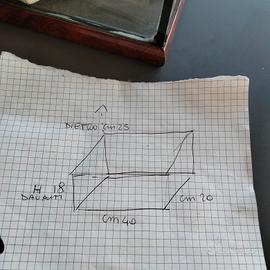 DIETRO cm 25
H 18
DAVANTI
cm 20
cm 40